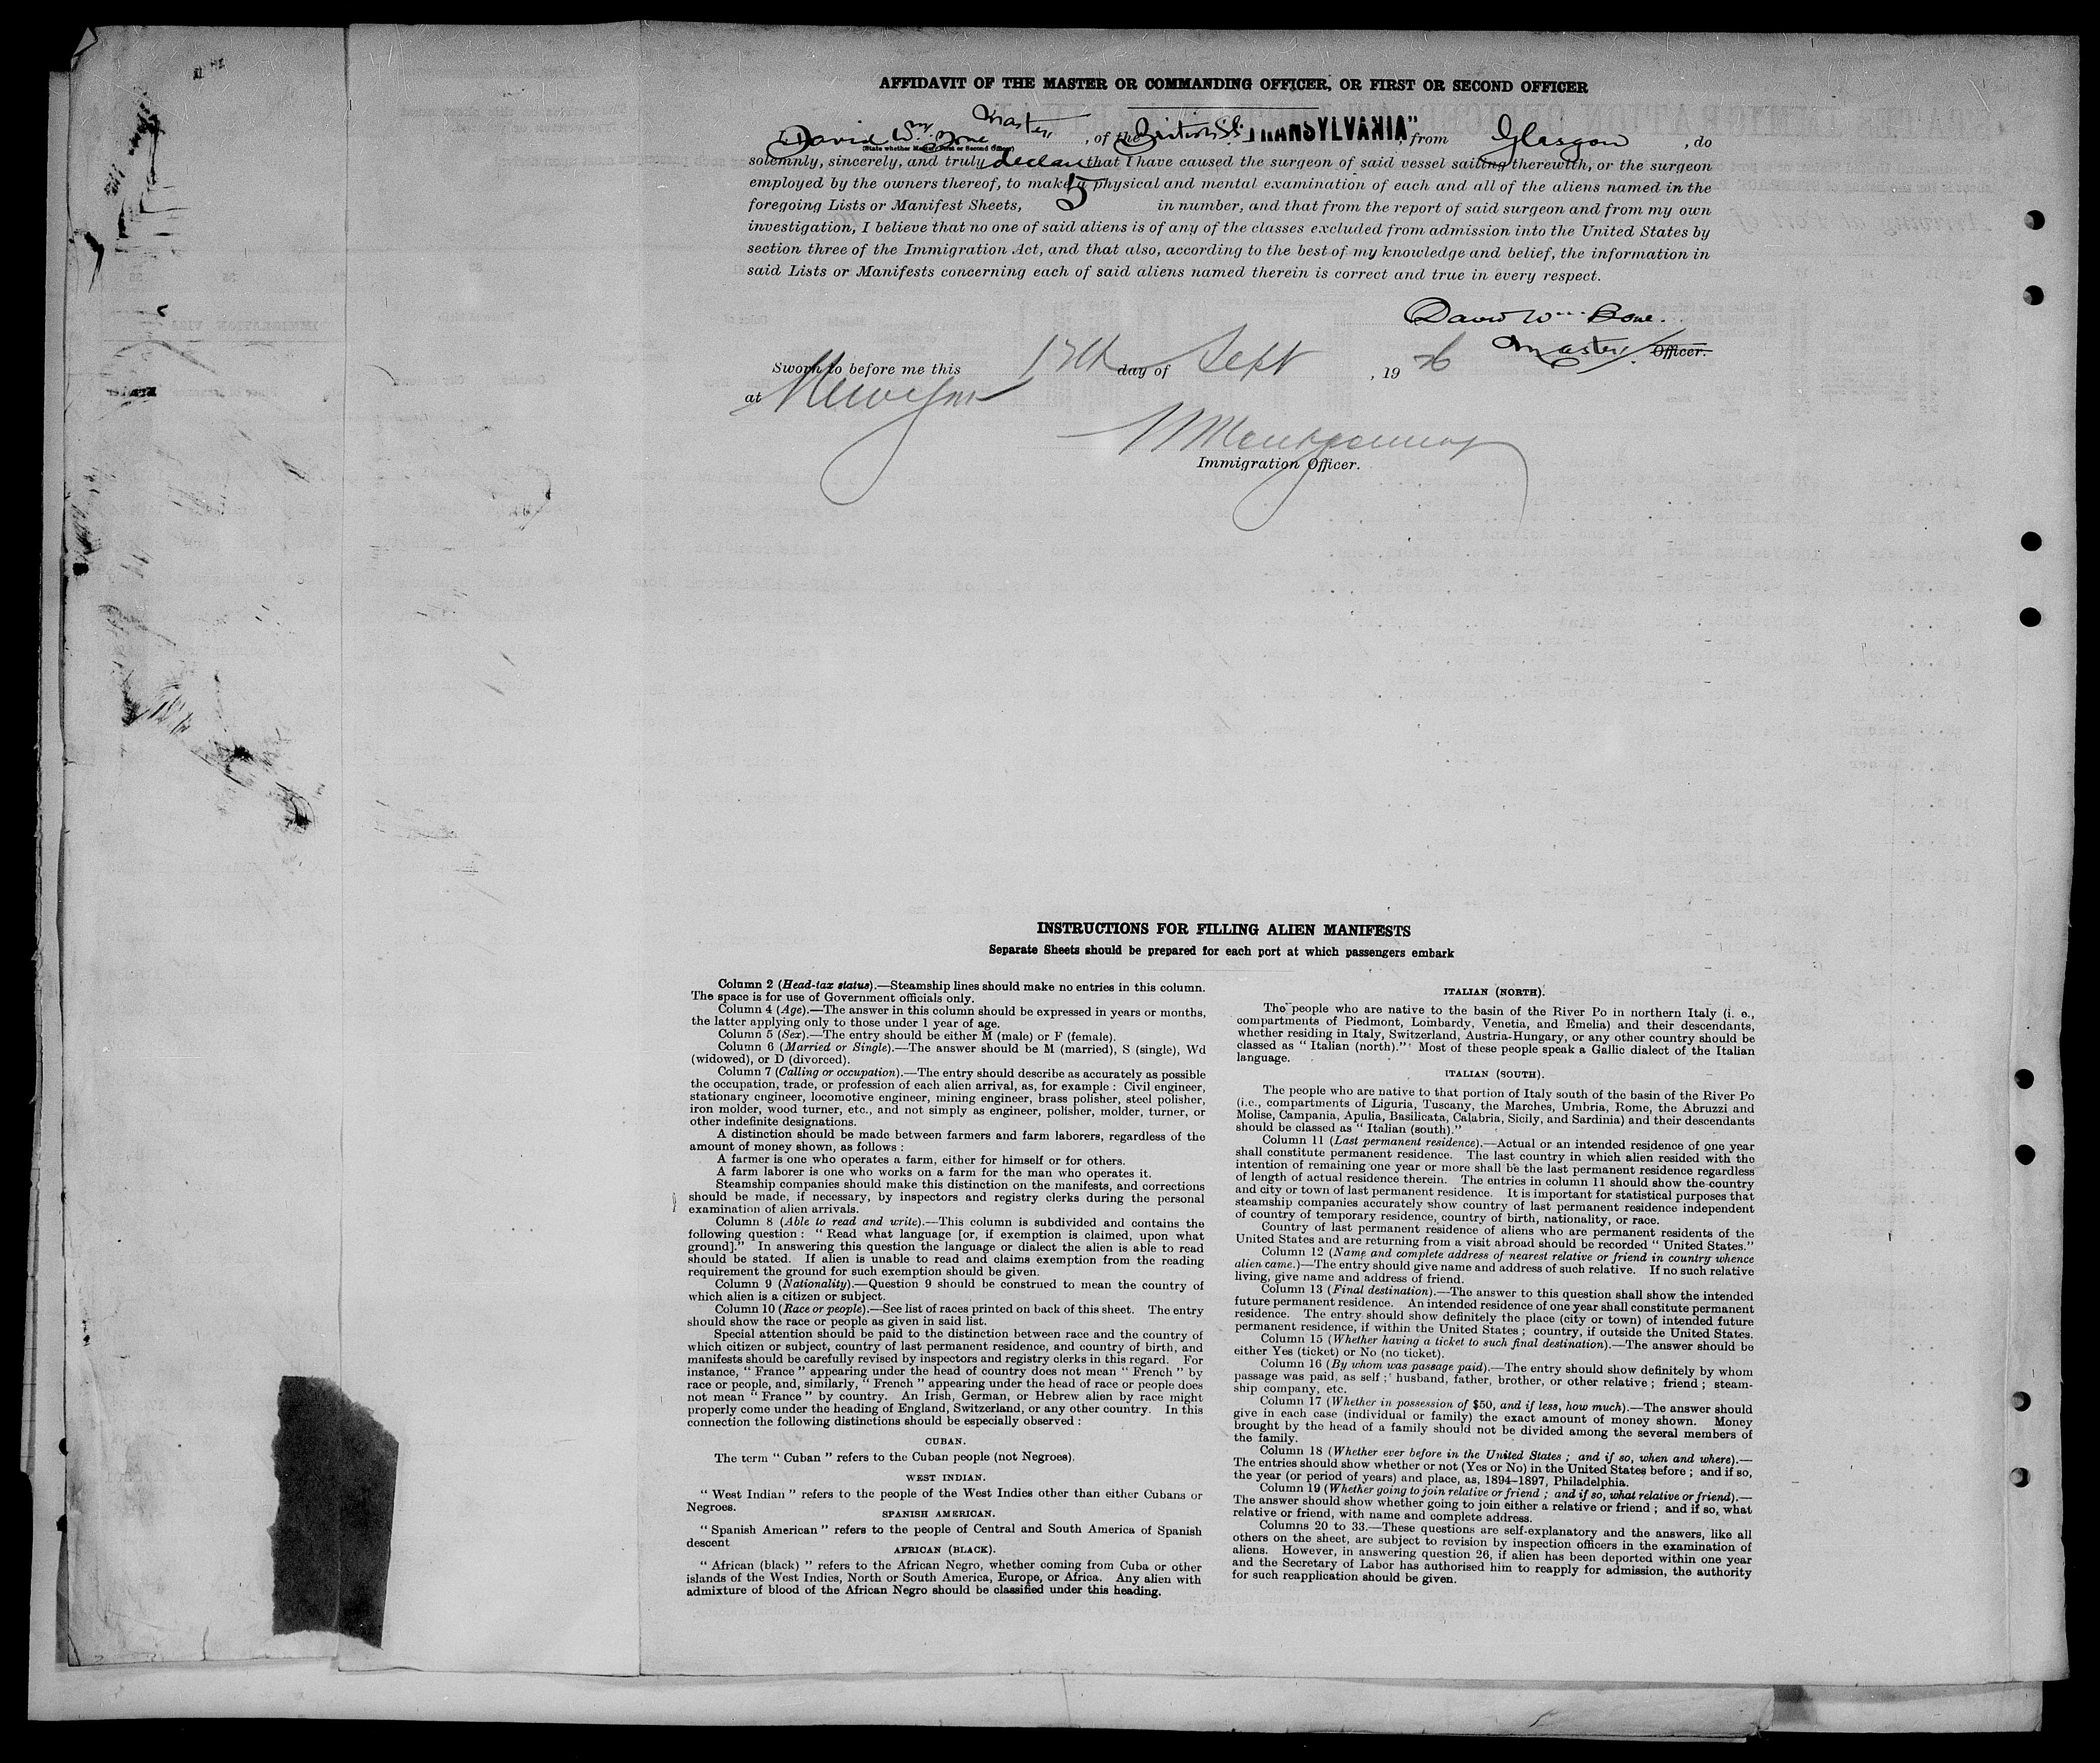 AFFIDAVIT OF THE MASTER OR COMMANDING OFFICER, OR FIRST OR SECOND OFFICER
I, David Wm. Bone Master, of the British S.S. "TRANSYLVANIA", from Glasgow, do
(State whether Master, First or Second Officer)
solemnly, sincerely, and truly declare that I have caused the surgeon of said vessel sailing therewith, or the surgeon
employed by the owners thereof, to make a physical and mental examination of each and all of the aliens named in the
foregoing Lists or Manifest Sheets, 5 in number, and that from the report of said surgeon and from my own
investigation, I believe that no one of said aliens is of any of the classes excluded from admission into the United States by
section three of the Immigration Act, and that also, according to the best of my knowledge and belief, the information in
said Lists or Manifests concerning each of said aliens named therein is correct and true in every respect.
David Wm. Bone.
Master. Officer.
Sworn to before me this day of Sept, 19 26
at
Montgomery
Immigration Officer.
INSTRUCTIONS FOR FILLING ALIEN MANIFESTS
Separate Sheets should be prepared for each port at which passengers embark
Column 2 (Head-tax status).—Steamship lines should make no entries in this column.
The space is for use of Government officials only.
Column 4 (Age).—The answer in this column should be expressed in years or months,
the latter applying only to those under 1 year of age.
Column 5 (Sex).—The entry should be either M (male) or F (female).
Column 6 (Married or Single).—The answer should be M (married), S (single), Wd
(widowed), or D (divorced).
Column 7 (Calling or occupation).—The entry should describe as accurately as possible
the occupation, trade, or profession of each alien arrival, as, for example : Civil engineer,
stationary engineer, locomotive engineer, mining engineer, brass polisher, steel polisher,
iron molder, wood turner, etc., and not simply as engineer, polisher, molder, turner, or
other indefinite designations.
A distinction should be made between farmers and farm laborers, regardless of the
amount of money shown, as follows :
A farmer is one who operates a farm, either for himself or for others.
A farm laborer is one who works on a farm for the man who operates it.
Steamship companies should make this distinction on the manifests, and corrections
should be made, if necessary, by inspectors and registry clerks during the personal
examination of alien arrivals.
Column 8 (Able to read and write).—This column is subdivided and contains the
following question : "Read what language [or, if exemption is claimed, upon what
ground]." In answering this question the language or dialect the alien is able to read
should be stated. If alien is unable to read and claims exemption from the reading
requirement the ground for such exemption should be given.
Column 9 (Nationality).—Question 9 should be construed to mean the country of
which alien is a citizen or subject.
Column 10 (Race or people).—See list of races printed on back of this sheet. The entry
should show the race or people as given in said list.
Special attention should be paid to the distinction between race and the country of
which citizen or subject, country of last permanent residence, and country of birth, and
manifests should be carefully revised by inspectors and registry clerks in this regard. For
instance, "France" appearing under the head of country does not mean "French" by
race or people, and, similarly, "French" appearing under the head of race or people does
not mean "France" by country. An Irish, German, or Hebrew alien by race might
properly come under the heading of England, Switzerland, or any other country. In this
connection the following distinctions should be especially observed :
CUBAN.
The term "Cuban" refers to the Cuban people (not Negroes).
WEST INDIAN.
"West Indian" refers to the people of the West Indies other than either Cubans or
Negroes.
SPANISH AMERICAN.
"Spanish American" refers to the people of Central and South America of Spanish
descent
AFRICAN (BLACK).
"African (black)" refers to the African Negro, whether coming from Cuba or other
islands of the West Indies, North or South America, Europe, or Africa. Any alien with
admixture of blood of the African Negro should be classified under this heading.
ITALIAN (NORTH).
The people who are native to the basin of the River Po in northern Italy (i. e.,
compartments of Piedmont, Lombardy, Venetia, and Emelia) and their descendants,
whether residing in Italy, Switzerland, Austria-Hungary, or any other country should be
classed as "Italian (north)." Most of these people speak a Gallic dialect of the Italian
language.
ITALIAN (SOUTH).
The people who are native to that portion of Italy south of the basin of the River Po
(i.e., compartments of Liguria, Tuscany, the Marches, Umbria, Rome, the Abruzzi and
Molise, Campania, Apulia, Basilicata, Calabria, Sicily, and Sardinia) and their descendants
should be classed as "Italian (south)."
Column 11 (Last permanent residence).—Actual or an intended residence of one year
shall constitute permanent residence. The last country in which alien resided with the
intention of remaining one year or more shall be the last permanent residence regardless
of length of actual residence therein. The entries in column 11 should show the country
and city or town of last permanent residence. It is important for statistical purposes that
steamship companies accurately show country of last permanent residence independent
of country of temporary residence, country of birth, nationality, or race.
Country of last permanent residence of aliens who are permanent residents of the
United States and are returning from a visit abroad should be recorded "United States."
Column 12 (Name and complete address of nearest relative or friend in country whence
alien came.)—The entry should give name and address of such relative. If no such relative
living, give name and address of friend.
Column 13 (Final destination).—The answer to this question shall show the intended
future permanent residence. An intended residence of one year shall constitute permanent
residence. The entry should show definitely the place (city or town) of intended future
permanent residence, if within the United States ; country, if outside the United States.
Column 15 (Whether having a ticket to such final destination).—The answer should be
either Yes (ticket) or No (no ticket).
Column 16 (By whom was passage paid).—The entry should show definitely by whom
passage was paid, as self ; husband, father, brother, or other relative ; friend ; steam-
ship company, etc.
Column 17 (Whether in possession of $50, and if less, how much).—The answer should
give in each case (individual or family) the exact amount of money shown. Money
brought by the head of a family should not be divided among the several members of
the family.
Column 18 (Whether ever before in the United States ; and if so, when and where).—
The entries should show whether or not (Yes or No) in the United States before ; and if so,
the year (or period of years) and place, as, 1894–1897, Philadelphia.
Column 19 (Whether going to join relative or friend ; and if so, what relative or friend).—
The answer should show whether going to join either a relative or friend ; and if so, what
relative or friend, with name and complete address.
Columns 20 to 33.—These questions are self-explanatory and the answers, like all
others on the sheet, are subject to revision by inspection officers in the examination of
aliens. However, in answering question 26, if alien has been deported within one year
and the Secretary of Labor has authorised him to reapply for admission, the authority
for such reapplication should be given.